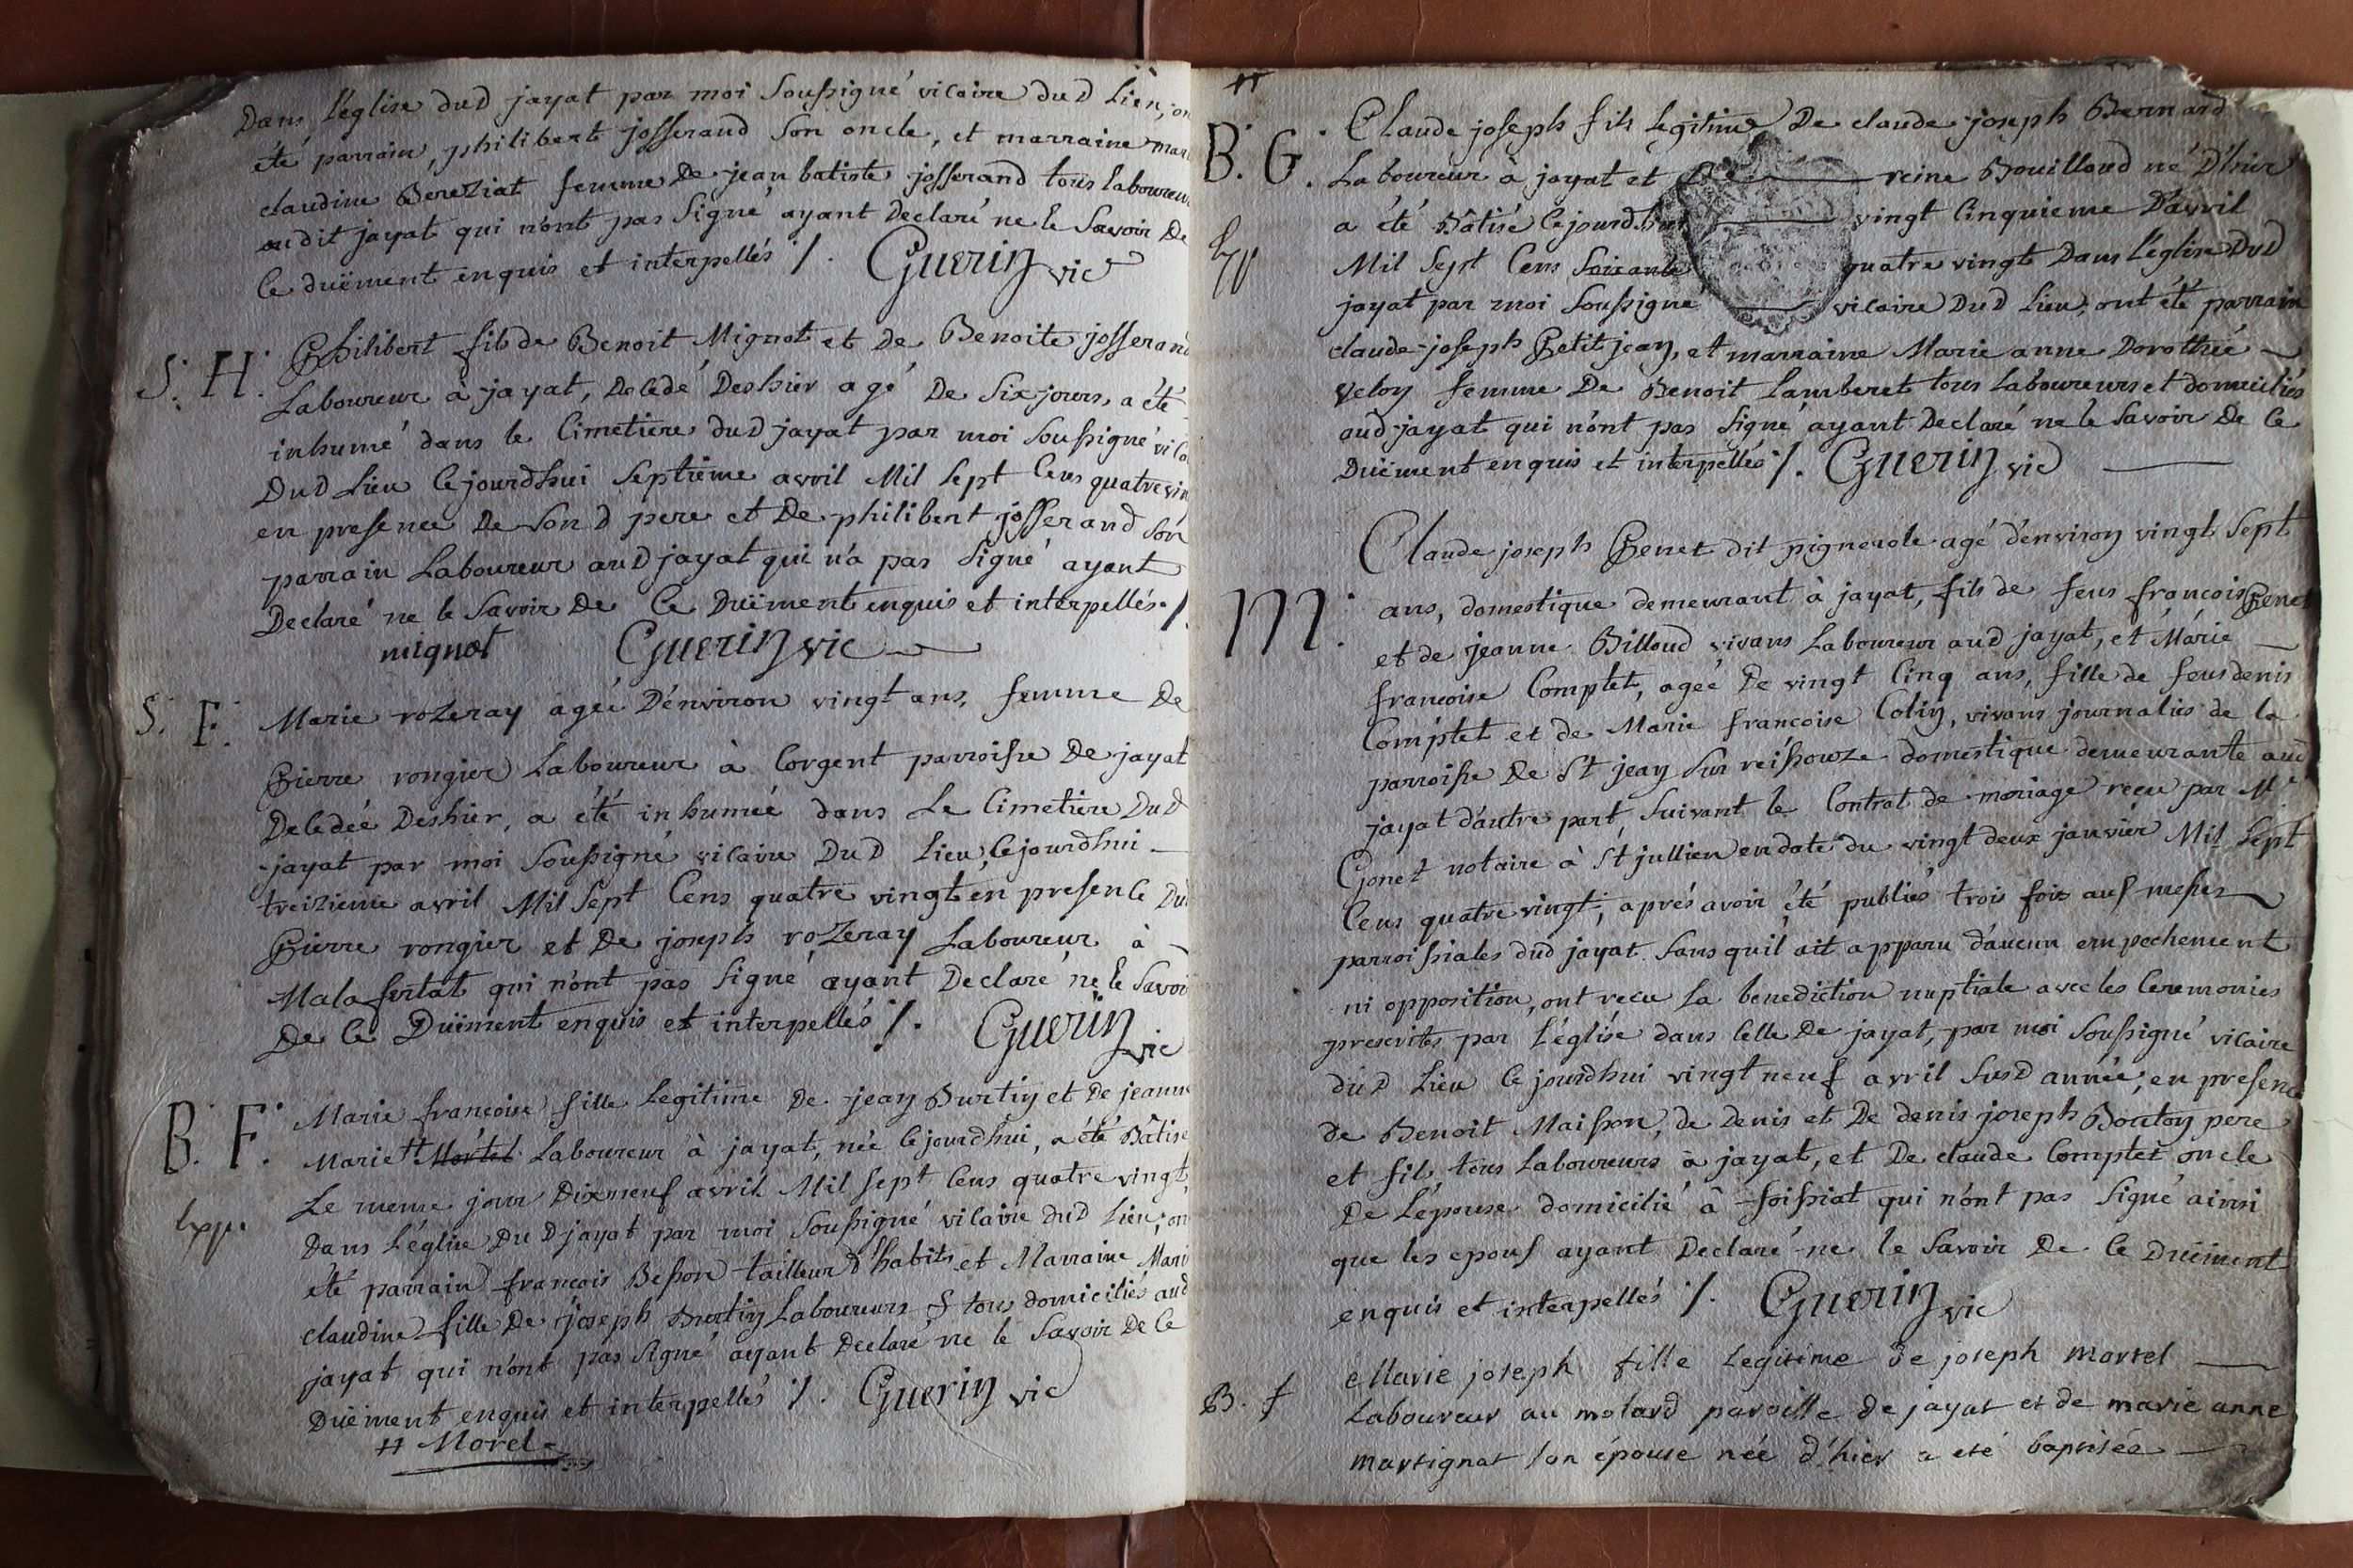 Dans l'église dud jayat par moi soussigné vicaire dud Lieu; on
été parrain, philibert josserand son oncle, et marraine mar
claudine Bereziat femme De jean batiste josserand tous laboureur
audit jayat qui n'ont pas signé ayant Declaré ne le savoir De
ce duëment enquis et interpellés ./. Guerin vic
S. H. Philibert fils de Benoit Mignot et de Benoite josserand
Laboureur à jayat, Decedé Deshier agé De six jours, a été
inhumé dans le Cimetiere dud jayat par moi soussigné vica
Dud Lieu Cejourdhui septième avril Mil sept Cens quatre vin
en presence De son D pere et De philibert josserand son
parrain Laboureur aud jayat qui n'a pas signé ayant
Declaré ne le savoir De Ce Duëment enquis et interpellés ./.
mignot Guerin vic
S. F. Marie rozeray agéé D'environ vingt ans, femme De
Pierre rongier Laboureur à Corgent parroisse De jayat
Decedéé Deshier, a été inhumée dans Le Cimetiere DuD
jayat par moi soussigné vicaire DuD Lieu, Cejourdhui
treizieme avril Mil sept Cens quatre vingt en presence Du
Pierre rongier et De joseph rozeray Laboureur à
Malafertat qui n'ont pas signé ayant Declaré ne le savoi
De Ce Duëment enquis et interpellés ./. Guerin
vic
B. F. Marie francoise fille Legitime De jean Burtin et De jeanne
Marie # Mortel Laboureur à jayat, née Cejourdhui, a été Bâtisé
Le meme jour Dixneuf avril Mil sept Cens quatre vingt
Dans L'église Du D jayat par moi soussigné vicaire dud Lieu; on
été parrain francois Besson tailleur d'habits et Marraine Mari
claudine fille De joseph Burtin Laboureurs & tous domiciliés aud
jayat qui n'ont pas signé ayant Declaré ne le savoir De Ce
Duëment enquis et interpellés ./. Guerin vic
# Morel
B. G. Claude joseph fils Legitime De claude joseph Bernard
Laboureur à jayat et reine Bouilloud né D'hier
a été Bâtisé Cejourdhui vingt Cinquieme D'avril
Mil sept Cens soixante quatre vingt Dans L'église DuD
jayat par moi soussigné vicaire DuD Lieu, ont été parrain
claude-joseph Petitjean, et marraine Marie anne Dorothée
veloy femme De Benoit Lamberet tous Laboureurs et domiciliés
aud jayat qui n'ont pas signé ayant Declaré ne le savoir De Ce
Duëment enquis et interpellés ./. Guerin vic
Claude joseph Penet dit pignerole agé d'environ vingt sept
M. ans, domestique demeurant à jayat, fils de feus francois Penet
et de jeanne Billoud vivans Laboureur aud jayat, et Marie
francoise Comptet, agéé De vingt Cinq ans, fille de feus denis
Comptet et de Marie francoise Colin, vivans journaliés de la
parroisse De St jean sur reissouze domestique demeurante aud
jayat d'autre part, suivant le Contrat de mariage recu par Me
Gonet notaire à St jullien en date du vingt deux janvier Mil sept
Cens quatre vingt; aprés avoir été publiés trois fois aus messes
parroissiales dud jayat sans quil ait apparu d'aucun empechement
ni opposition, ont recu la benediction nuptiale avec les Ceremonies
prescrites par L'église dans Celle De jayat, par moi soussigné vicaire
dud Lieu Cejourdhui vingt neuf avril susd année; en presence
de Benoit Maisson, de Denis et De denis joseph Bouton pere
et fils, tous Laboureurs à jayat, et De claude Comptet oncle
De L'épouse domicilié à foissiat qui n'ont pas signé ainsi
que les epous ayant Declaré ne le savoir De Ce Duëment
enquis et interpellés ./. Guerin vic
Marie joseph fille Legitime de joseph mortel
B. f Laboureur au molard paroisse de jayat et de marie anne
martignat son épouse née d'hier a eté baptisée